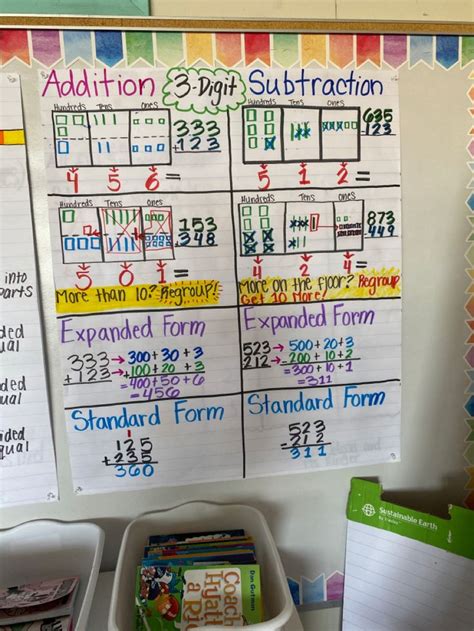 Addition 3-Digit Subtraction
Hundreds Tens Ones
333
123
4 5 6 =
Hundreds Tens Ones
635
-123
5 1 2 =
Hundreds Tens Ones
153
348
5 0 1 =
More than 10? Regroup!
Hundreds Tens Ones
873
-449
4 2 4 =
More on the floor? Regroup
Get 10 More!
Expanded Form
333 → 300 + 30 + 3
+ 123 → + 100 + 20 + 3
= 400 + 50 + 6
= 456
Expanded Form
523 → 500 + 20 + 3
212 → - 200 + 10 + 2
= 300 + 10 + 1
= 311
Standard Form
1
125
+ 235
360
Standard Form
523
- 212
311
into
parts
ded
ual
ded
ual
ided
qual
Sustainable Earth
Coach
Hyatt
Dan Gutman